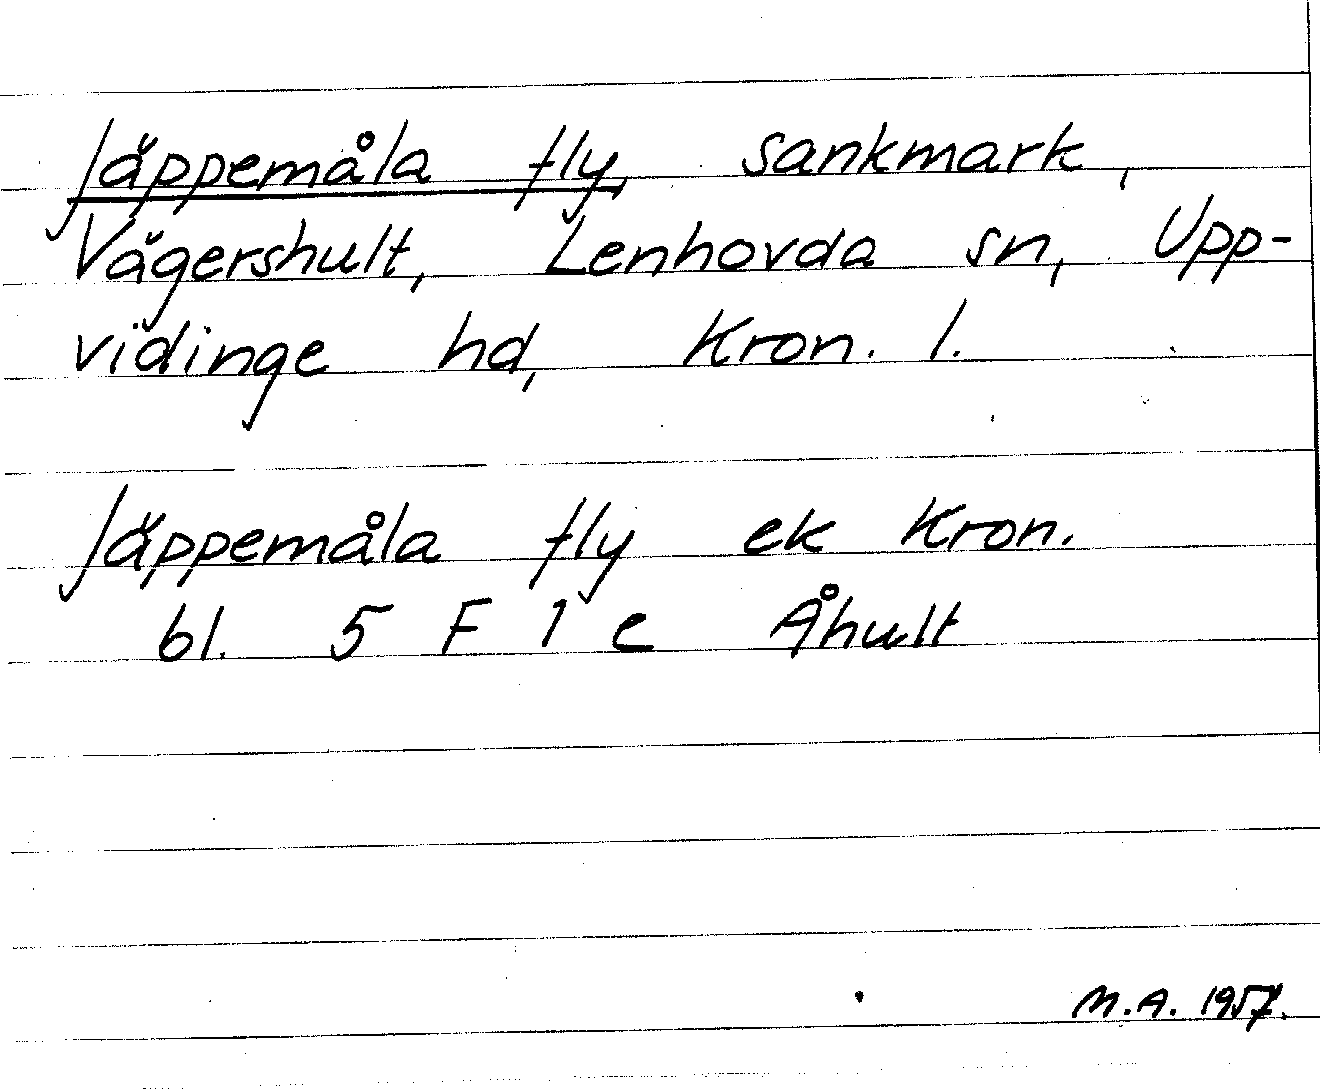 Jäppemåla fly, sankmark,
Vägershult, Lenhovda sn, Upp-
vidinge hd, Kron. l.
Jäppemåla fly ek Kron.
bl. 5 F 1 e Åhult
M.A. 1957.